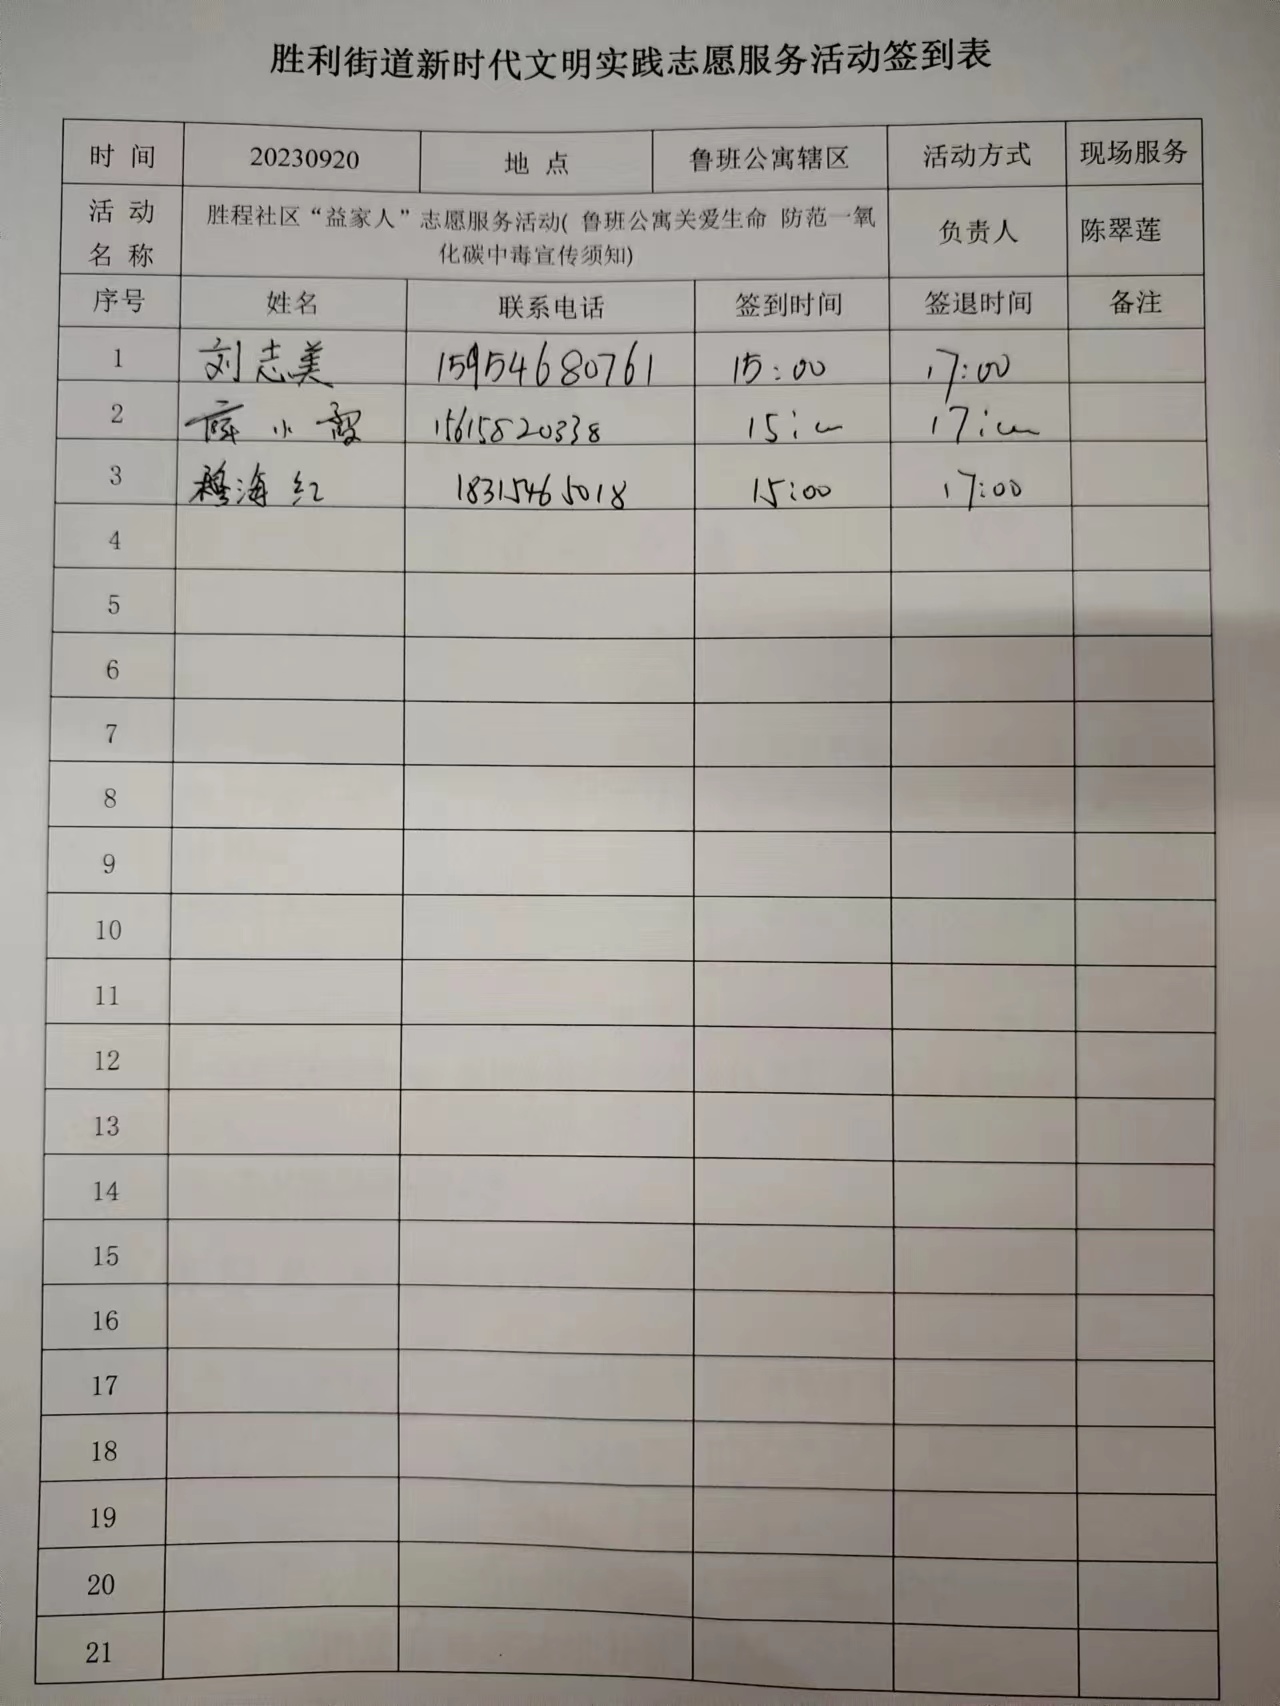 胜利街道新时代文明实践志愿服务活动签到表
时 间 20230920 地 点 鲁班公寓辖区 活动方式 现场服务
活 动 名 称 胜程社区“益家人”志愿服务活动( 鲁班公寓关爱生命 防范一氧化碳中毒宣传须知) 负责人 陈翠莲
序号 姓名 联系电话 签到时间 签退时间 备注
1 刘志美 15954680761 15:00 17:00
2 小霞 15615820338 15:00 17:00
3 穆海红 18315465018 15:00 17:00
4
5
6
7
8
9
10
11
12
13
14
15
16
17
18
19
20
21